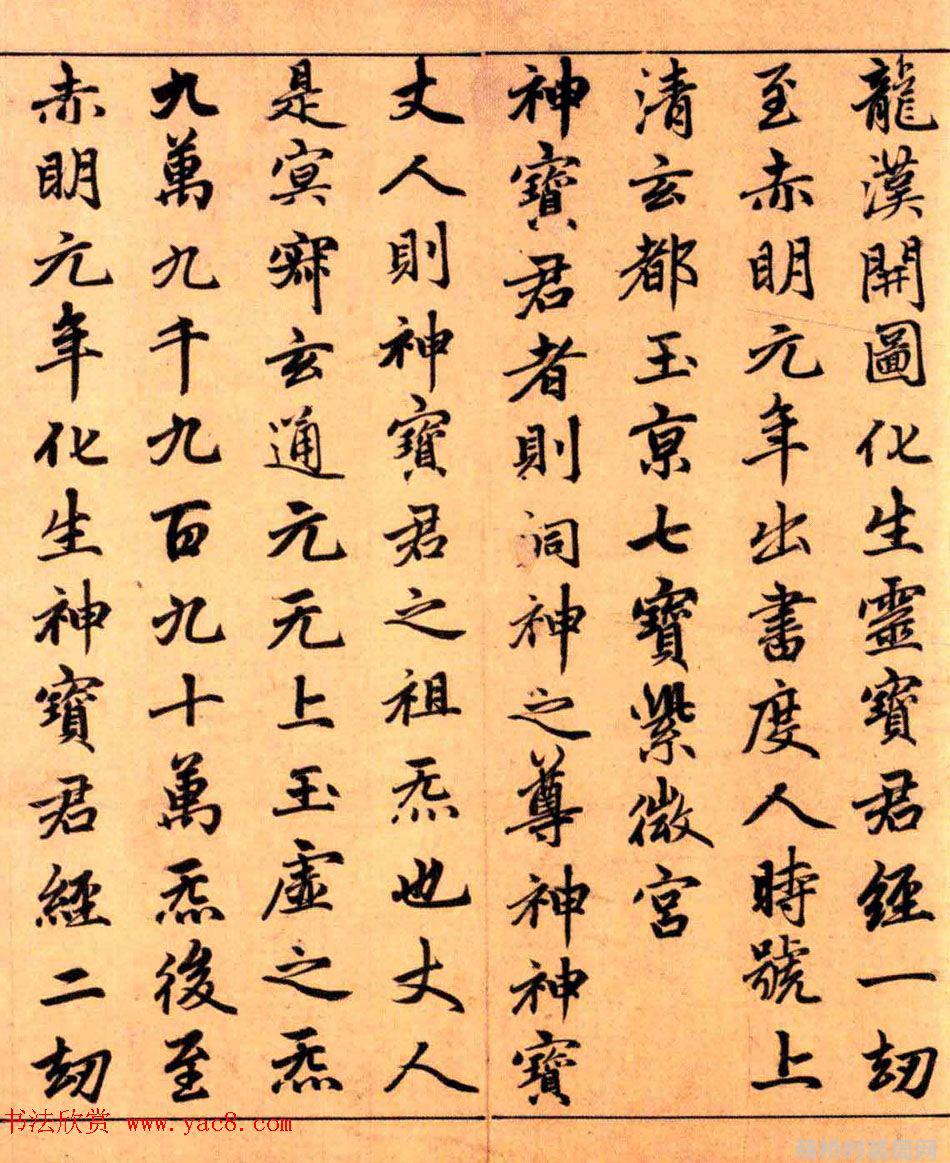 龍漢開圖化生靈寶君經一劫
至赤明元年出書度人時號上
清玄都玉京七寶紫微宮
神寶君者則洞神之尊神神寶
丈人則神寶君之祖炁也丈人
是冥寂玄通元无上玉虛之炁
九萬九千九百九十萬炁後至
赤明元年化生神寶君經二劫
书法欣赏 www.yac8.com